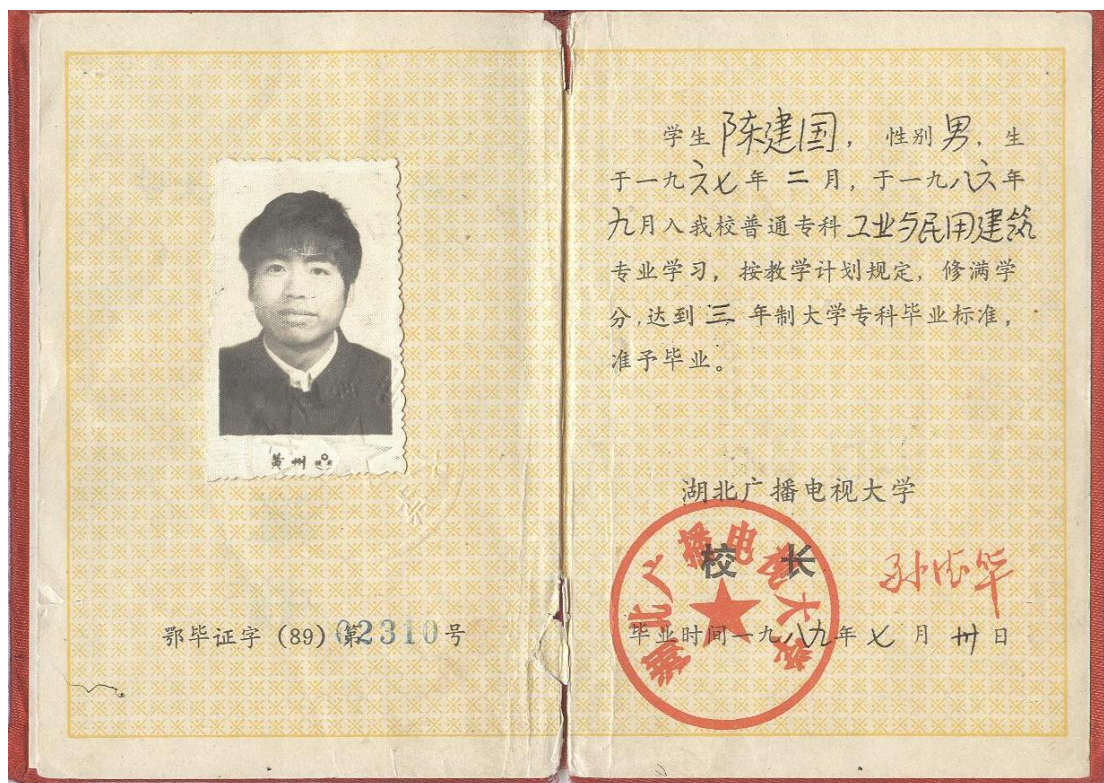 黄州
鄂毕证字(89)第02310号
学生陈建国,性别男,生
于一九六七年二月,于一九八六年
九月入我校普通专科工业与民用建筑
专业学习,按教学计划规定,修满学
分,达到三年制大学专科毕业标准,
准予毕业。
湖北广播电视大学
湖北广播电视大学
校长
毕业时间一九八九年七月卅日